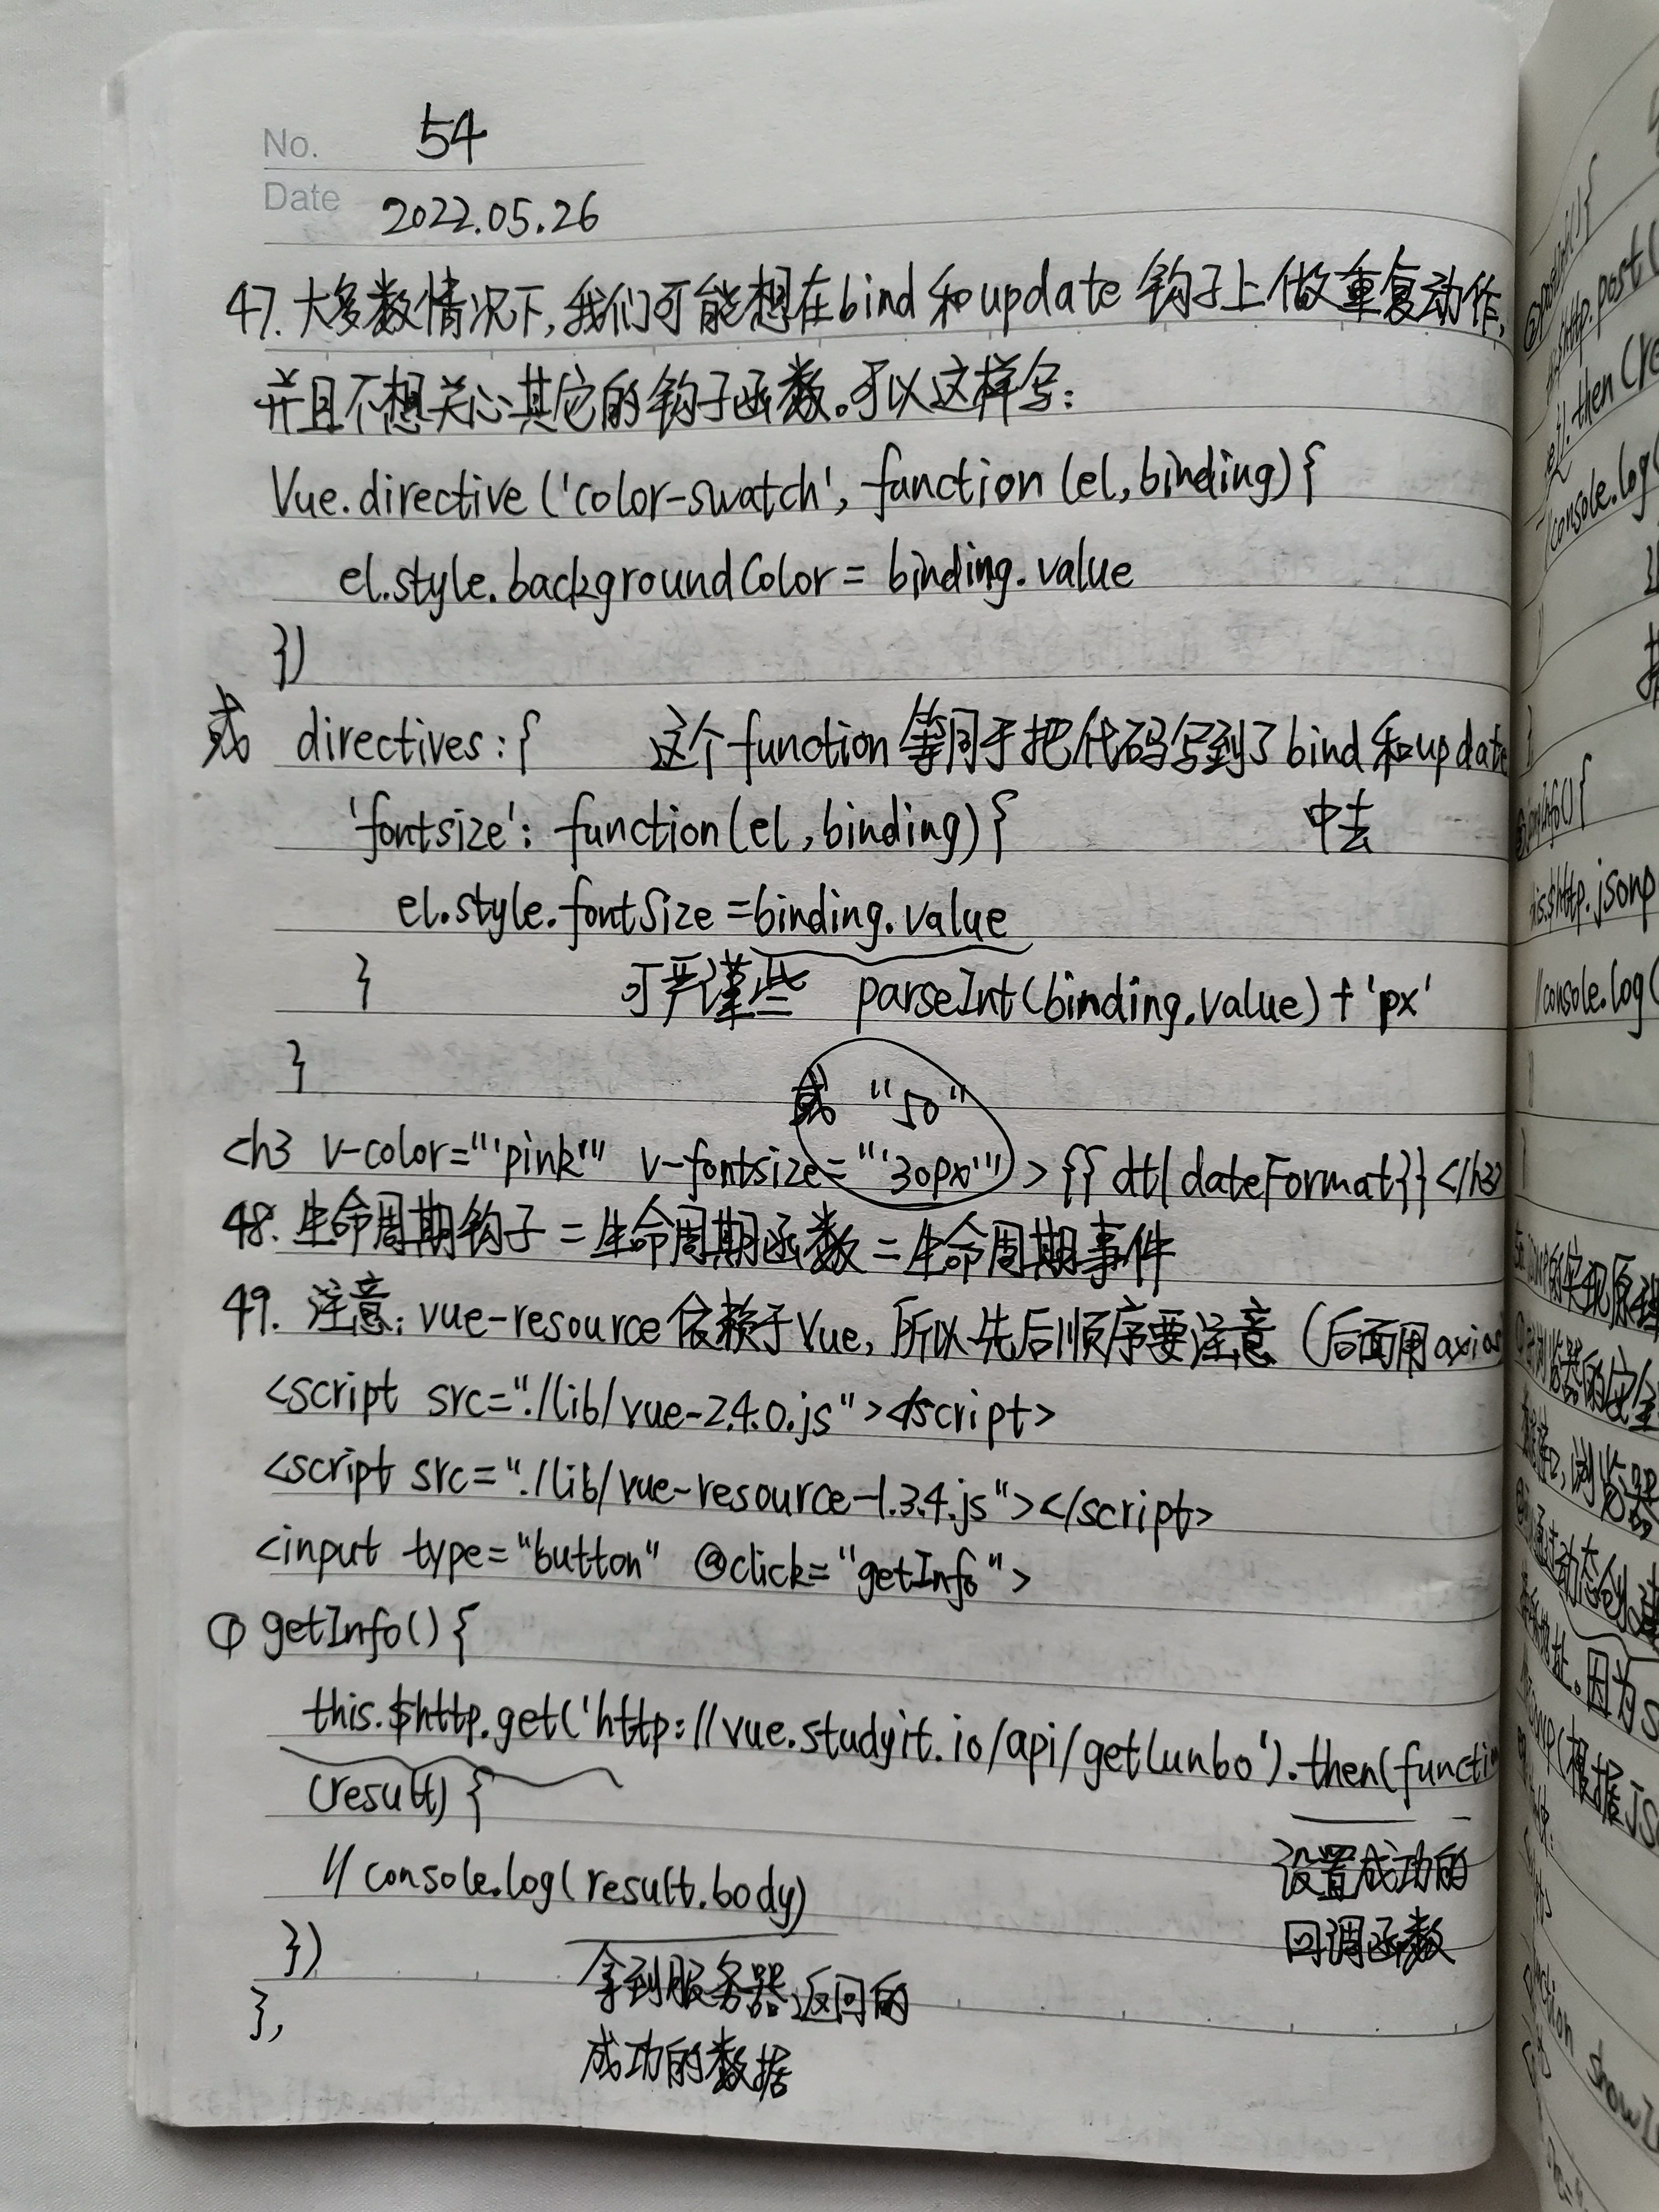 No. 54
Date 2022.05.26
47. 大多数情况下,我们可能想在bind和update 钩子上做重复动作,
并且不想关心其它的钩子函数。可以这样写:
Vue.directive('color-swatch', function (el, binding) {
el.style.backgroundColor = binding.value
})
或 directives: { 这个function等同于把代码写到了bind和update
'fontsize': function(el, binding) { 中去
el.style.fontSize = binding.value
} 可严谨些 parseInt(binding.value) + 'px'
}
或 "50"
<h3 v-color="'pink'" v-fontsize="'30px'">{{ dt | dateFormat}}</h3>
48. 生命周期钩子 = 生命周期函数 = 生命周期事件
49. 注意: vue-resource依赖于Vue, 所以先后顺序要注意 (后面用axios
<script src="./lib/vue-2.4.0.js"></script>
<script src="./lib/vue-resource-1.3.4.js"></script>
<input type="button" @click="getInfo">
① getInfo() {
this.$http.get('http://vue.studyit.io/api/getlunbo').then(functi
(result) {
// console.log(result.body) 设置成功的
回调函数
}) 拿到服务器返回的
}, 成功的数据
{
http.post(
.then(re
console.log(
Info() {
this.$http.jsonp
//console.log(
的实现原理
浏览器的安全
浏览器
动态创建
地址。因为s
(根据js
show